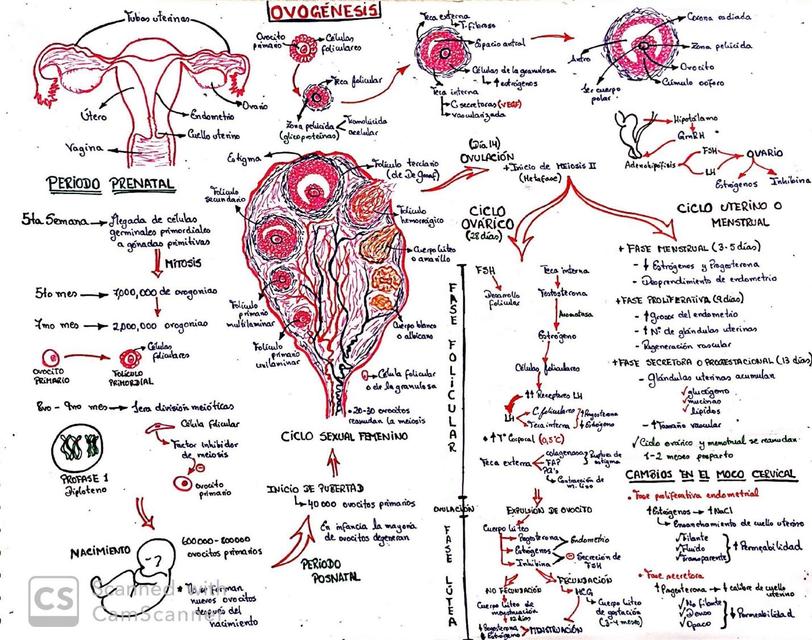 OVOGÉNESIS
Tubas uterinas
Útero
Endometrio
Ovario
Cuello uterino
Vagina
Ovocito
primario
Células
foliculares
Teca folicular
Zona pelúcida
(glicoproteínas)
Translúcida
acelular
Teca externa
T. fibroso
Espacio antral
Células de la granulosa
↑ estrógenos
Teca interna
C. secretoras (VEGF)
vascularizada
Corona radiada
Zona pelúcida
Ovocito
Cúmulo oóforo
Antro
1er cuerpo
polar
Hipotálamo
GnRH
Adenohipófisis
FSH
LH
OVARIO
Estrógenos
Inhibina
PERÍODO PRENATAL
5ta Semana → llegada de células
germinales primordiales
a gónadas primitivas
MITOSIS
5to mes → 7,000,000 de ovogonias
7mo mes → 2,000,000 ovogonias
OVOCITO
PRIMARIO
Células
foliculares
FOLÍCULO
PRIMORDIAL
8vo - 9no mes → 1era división meiótica
PROFASE 1
Diploteno
Célula folicular
Factor inhibidor
de meiosis
Ovocito
primario
NACIMIENTO
600000-800000
ovocitos primarios
nuevos ovocitos
después del
nacimiento
Estigma
Folículo
secundario
Folículo terciario
(de De Graaf)
Folículo
hemorrágico
Cuerpo lúteo
o amarillo
Folículo
primario
multilaminar
Folículo
primario
unilaminar
Cuerpo blanco
o albicans
Célula folicular
o de la granulosa
• 20-30 ovocitos
reanudan la meiosis
CICLO SEXUAL FEMENINO
INICIO DE PUBERTAD
40000 ovocitos primarios
En infancia la mayoría
de ovocitos degeneran
PERÍODO
POSNATAL
(Día 14)
OVULACIÓN
+ Inicio de MEIOSIS II
(Metafase)
CICLO
OVÁRICO
(28 días)
FASE FOLICULAR
FSH
Desarrollo
folicular
Teca interna
Testosterona
Aromatasa
Estrógeno
Células foliculares
↑↑ Receptores LH
LH
C. foliculares
Teca interna
↑ Progesterona
↓ Estrógeno
• ↑ Tº Corporal (0,5°C)
Teca externa
colagenasa
FAP
PG's
Ruptura de
estigma
Contracción de
m. liso
OVULACIÓN
EXPULSIÓN DE OVOCITO
FASE LÚTEA
Cuerpo lúteo
Progesterona
Estrógenos
Inhibina
Endometrio
Secreción de
FSH
NO FECUNDACIÓN
Cuerpo lúteo de
menstruación
12 días
↓ Progesterona
↓ Estrógeno
MENSTRUACIÓN
FECUNDACIÓN
HCG
Cuerpo lúteo
de gestación
(3-4 meses)
CICLO UTERINO O
MENSTRUAL
+ FASE MENSTRUAL (3-5 días)
- ↓ Estrógenos y Progesterona
- Desprendimiento de endometrio
+ FASE PROLIFERATIVA (9 días)
- ↑ grosor del endometrio
- ↑ Nº de glándulas uterinas
- Regeneración vascular
+ FASE SECRETORA O PROGESTACIONAL (13 días)
- Glándulas uterinas acumulan
✓ glucógeno
✓ mucinas
✓ lípidos
- ↑ Tamaño vascular
✓ Ciclo ovárico y menstrual se reanudan
1-2 meses posparto
CAMBIOS EN EL MOCO CERVICAL
• Fase proliferativa endometrial
↑ Estrógenos → ↑ NaCl
Ensanchamiento de cuello uterino
✓ Filante
✓ Fluido
✓ Transparente
↑ Permeabilidad
• Fase secretora
↑ Progesterona → ↓ calibre de cuello
uterino
✓ No filante
✓ Denso
✓ Opaco
↓ Permeabilidad
CS
Scanned with
CamScanner